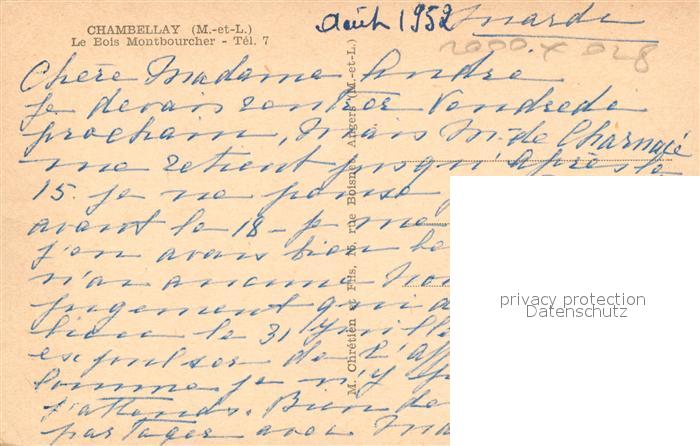 CHAMBELLAY (M.-et-L.)
Le Bois Montbourcher - Tél. 7
Août 1952 Mardi
2000 x 028
Chère Madame Andre
je devais rentrer Vendredi
prochain, mais M. de Charnacé
me retient jusqu'après le
15. je ne pense
avant le 18 -
j'en avais bien be
n'ai aucune
jugement qui d
bien le 31 Juille
expulser de l'app
comme je n'y
j'attends. Bien de
partager avec Ma
M. Chrétien et Fils, 26, rue Boisnet, Angers (M.-et-L.)
privacy protection
Datenschutz